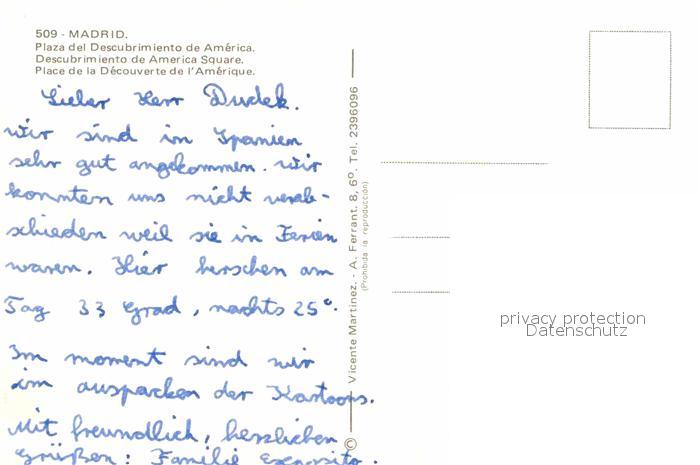 509 - MADRID.
Plaza del Descubrimiento de América.
Descubrimiento de America Square.
Place de la Découverte de l'Amérique.
Lieber Herr Dudek.
wir sind in Spanien
sehr gut angekommen. wir
konnten uns nicht verab-
schieden weil sie in Ferien
waren. Hier herschen am
Tag 33 Grad, nachts 25°.
Im moment sind wir
im auspacken der Kartoons.
Mit freundlich, herzlichen
Grüßen: Familie Exposito.
Vicente Martinez. - A. Ferrant. 8, 6º. Tel. 2396096
(Prohibida la reproducción)
©
privacy protection
Datenschutz